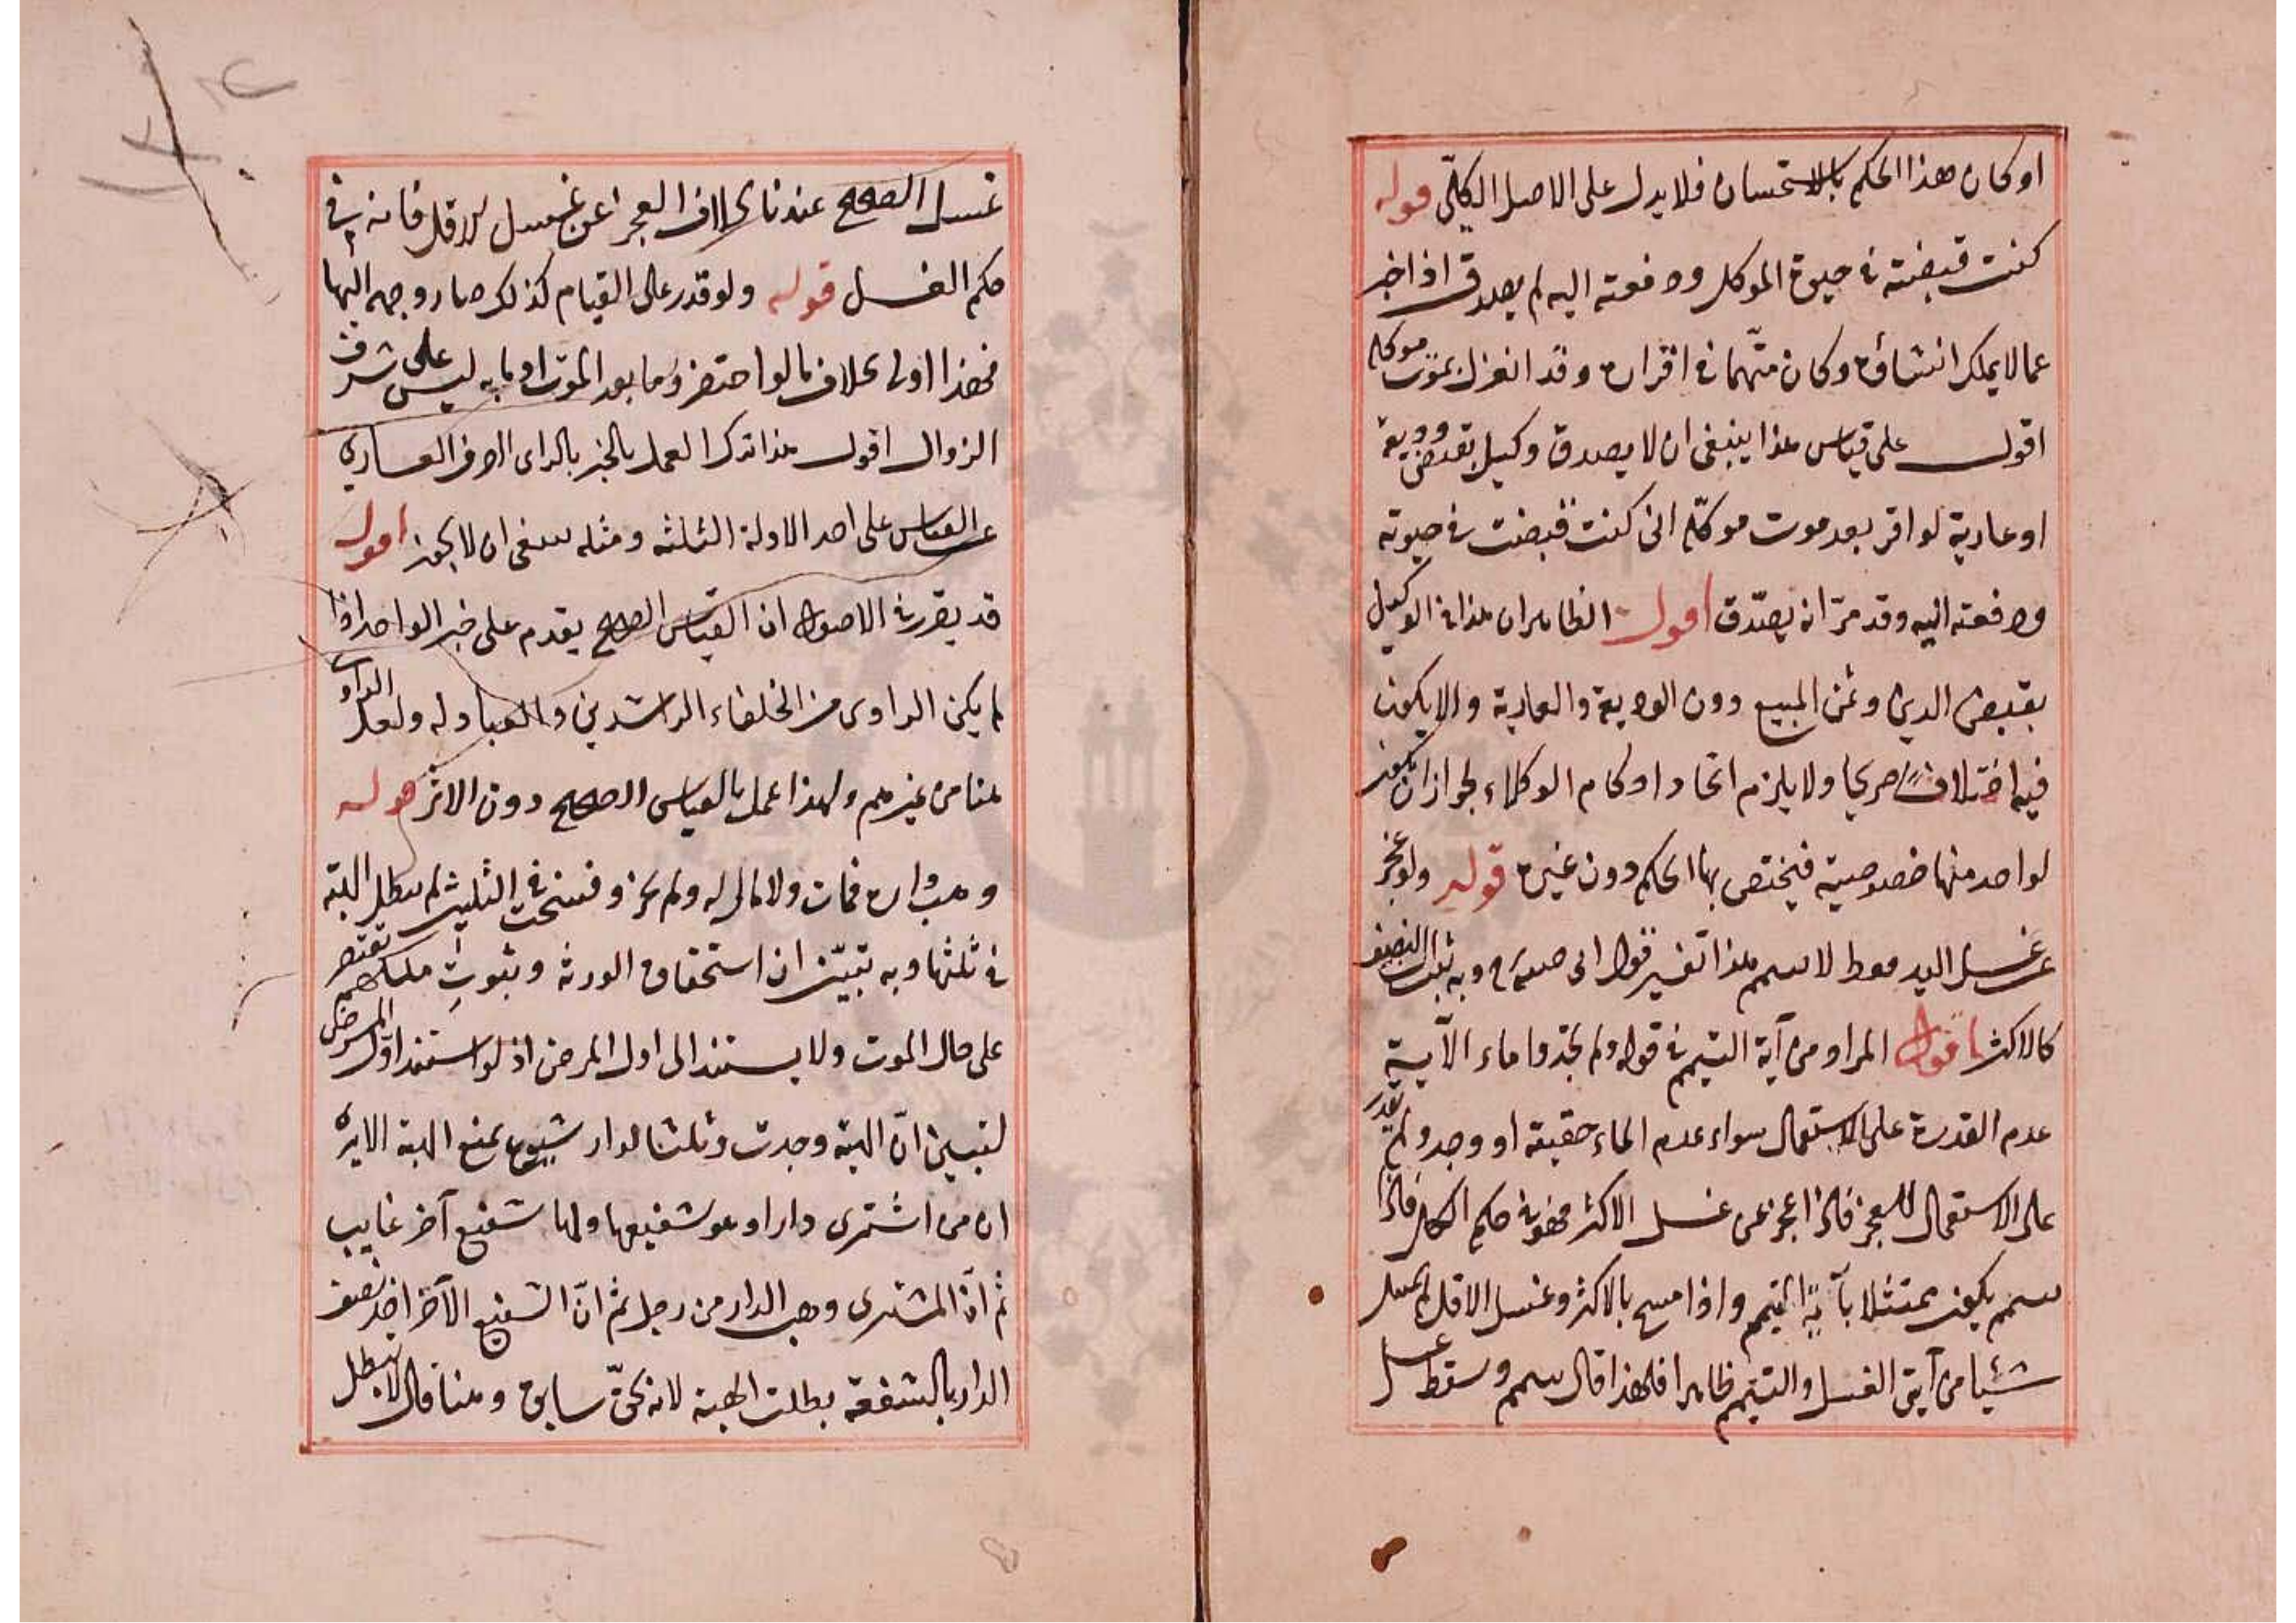 او كان هذا الحكم بالاستحسان فلا يدل على الاصل الكلّى قوله
كنت قبضته فى حيوة الموكل ودفعته اليه لم يصدق اذا اخبر
عما لا يملك انشاؤه وكان متّهما فى اقراره وقد انعزل بموت موكله
اقول على قياس هذا ينبغى ان لا يصدق وكيل بقبض وديعة
او عارية لو اقر بعد موت موكله انى كنت قبضت فى حيوته
ودفعته اليه وقد مرّ انه يصدّق اقول الظاهر ان هذا فى الوكيل
بقبض الدين وثمن المبيع دون الوديعة والعارية والا يكون
فيه اختلافا صريحا ولا يلزم اتحاد احكام الوكلاء لجواز ان يكون
لواحد منها خصوصية فيختص بها الحكم دون غيره قوله ولو عجز
عن غسل اليد فقط لا يتيمم هذا تفسير قول ابى حنيفة وبه النصف
كالاكثر اقول المراد من آية التيمم فى قوله ولم تجدوا ماء الآية
عدم القدرة على الاستعمال سواء عدم الماء حقيقة او وجد ولم يقدر
على الاستعمال للعجز فاذا عجز عن غسل الاكثر فهو فى حكم الكل فاذا
تيمم يكون ممتثلا بآية التيمم واذا مسح بالاكثر وغسل الاقل لم يعمل
شيئا من آيتى الغسل والتيمم ظاهرا فلهذا قال تيمم وسقط غسل
غسل الصحيح عندنا بخلاف العجز عن غسل الاقل فانه فى
حكم الغسل قوله ولو قدر على القيام كذلك صار وجهه اليها
فهذا اولى بخلاف ما لو احتضر وما بعد الموت اذ ما به ليس على شرف
الزوال اقول هذا ترك العمل بالخبر بالراى
القياس على احد الادلة الثلثه ومثله ينبغى ان لا يجوز اقول
قد يقرر فى الاصول ان القياس الصحيح يقدم على خبر الواحد اذا
لم يكن الراوى من الخلفاء الراشدين والعبادله ولعل الراوى
هنا من غيرهم ولهذا عمل بالقياس الصحيح دون الاثر قوله
وهب داره فمات ولا مال له ولم يجز وفسخت فى الثلثين لم يبطل الهبة
فى ثلثها وبه تبيّن ان استحقاق الورثة وبثبوت ملكهم تقتصر
على حال الموت ولا يستند الى اول المرض اذ لو استند اول المرض
لتبين انّ الهبة وجدت وثلثا الدار شيوع يمنع الهبة الا يرى
ان من اشترى دارا وهو شفيعها ولها شفيع آخر غايب
ثم انّ المشترى وهب الدار من رجل ثم انّ الشفيع الآخر اخذ نصف
الدار بالشفعة بطلت الهبة لانه بحقّ سابق وهنا قال لا يبطل